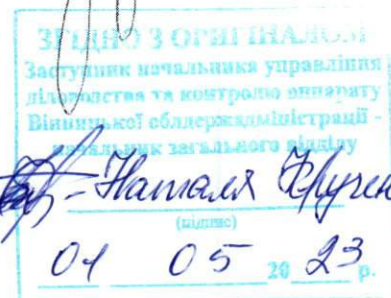 ЗГІДНО З ОРИГІНАЛОМ
Заступник начальника управління
діловодства та контролю апарату
Вінницької облдержадміністрації -
начальник загального відділу
Наталя
(підпис)
01 05 2023 р.